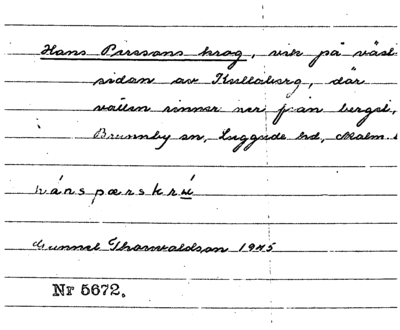 Hans Perssons krog, vik på väst-
sidan av Kullaberg, där
vatten rinner ner från berget,
Brunnby sn, Luggude hd, Malm.
hánspærskrú
Gunnel Thorwaldson 1945
Nr 5672.